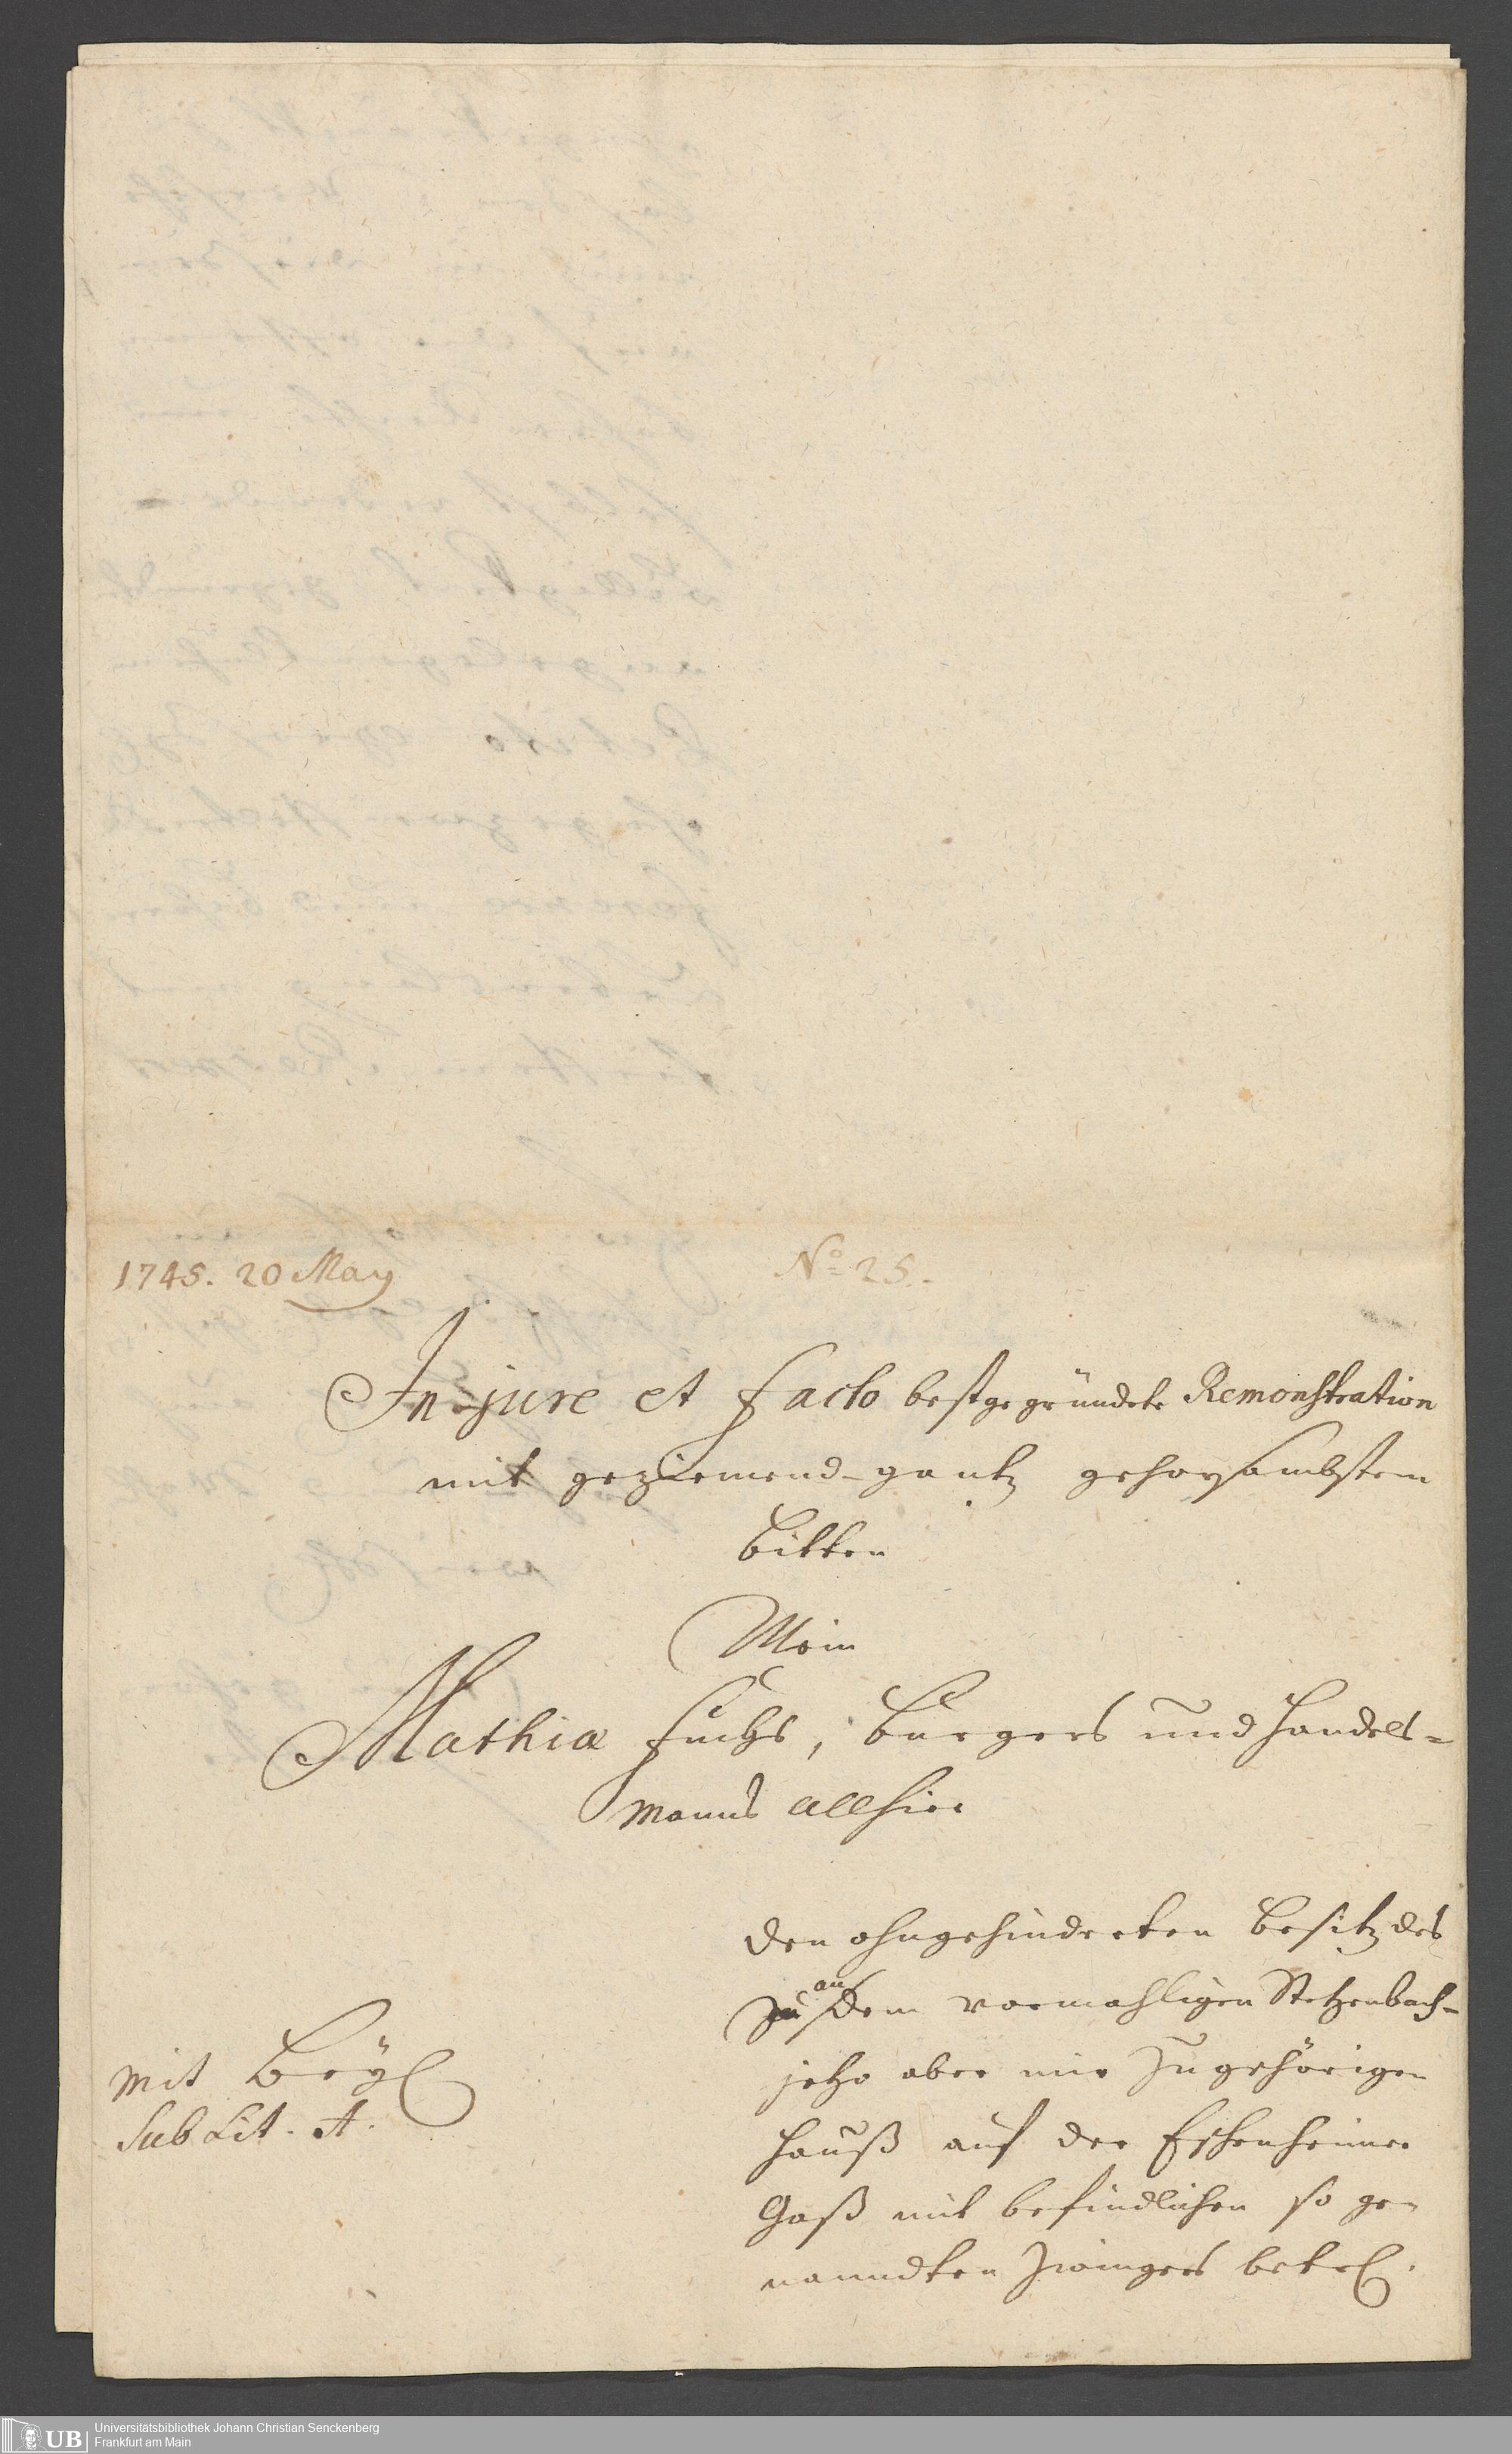 1745. 20 May
No. 25.
In jure et facto bestgegründete Remonstration
mit geziemend-gantz gehorsambstem
Bitten
Mein
Mathiæ Fuchs, Burgers und Handels=
manns allhier
den ohngehinderten Besitz des
an
zu dem vormahligen Stetzenbach-
jetzo aber mir zugehörigen
Hauß auf der Eschenheimer
Gaß mit befindlichen so ge-
nanndten Zwingers betr.
mit Beyl.
Sub Lit. A.
UB
Universitätsbibliothek Johann Christian Senckenberg
Frankfurt am Main